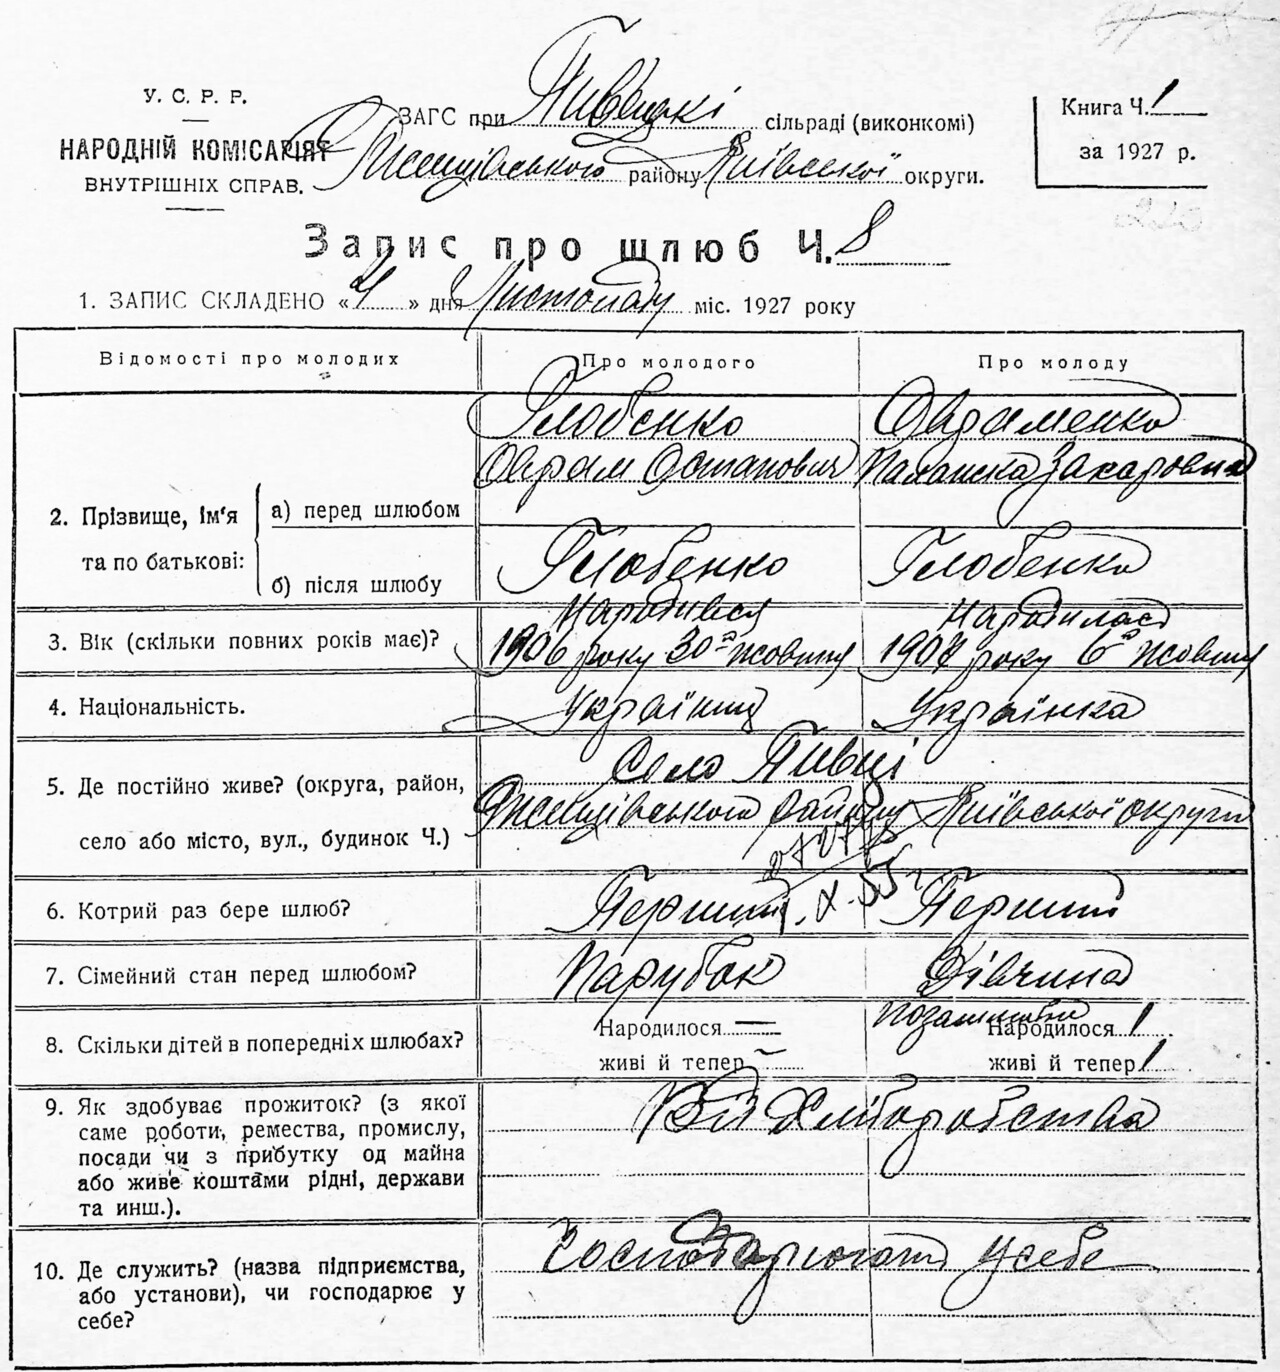 У. С. Р. Р.
НАРОДНІЙ КОМІСАРІЯТ
ВНУТРІШНІХ СПРАВ.
ЗАГС при Пивецькі сільраді (виконкомі)
Ржищівського району Київської округи.
Книга Ч. 1
за 1927 р.
220
Запис про шлюб Ч. 8
1. ЗАПИС СКЛАДЕНО « 4 » дня Листопаду міс. 1927 року
Відомості про молодих Про молодого Про молоду
Глобенко Авраменко
Аврам Остапович Палашка Захаровна
2. Прізвище, ім‘я та по батькові:
а) перед шлюбом
б) після шлюбу Глобенко Глобенко
Народився Народилась
3. Вік (скільки повних років має)? 1906 року 30го жовтня року 6го жовтня
4. Національність. Українець Українка
Село Пивці
5. Де постійно живе? (округа, район, Ржищівського району Київської округи
село або місто, вул., будинок Ч.)
6. Котрий раз бере шлюб? Перший Перший
7. Сімейний стан перед шлюбом? Парубок Дівчина
8. Скільки дітей в попередніх шлюбах? Народилося — Народилося 1
живі й тепер — живі й тепер 1
9. Як здобуває прожиток? (з якої Від Хліборобства
саме роботи, ремества, промислу,
посади чи з прибутку од майна
або живе коштами рідні, держави
та инш.).
10. Де служить? (назва підприємства, Господарюють у себе
або установи), чи господарює у
себе?